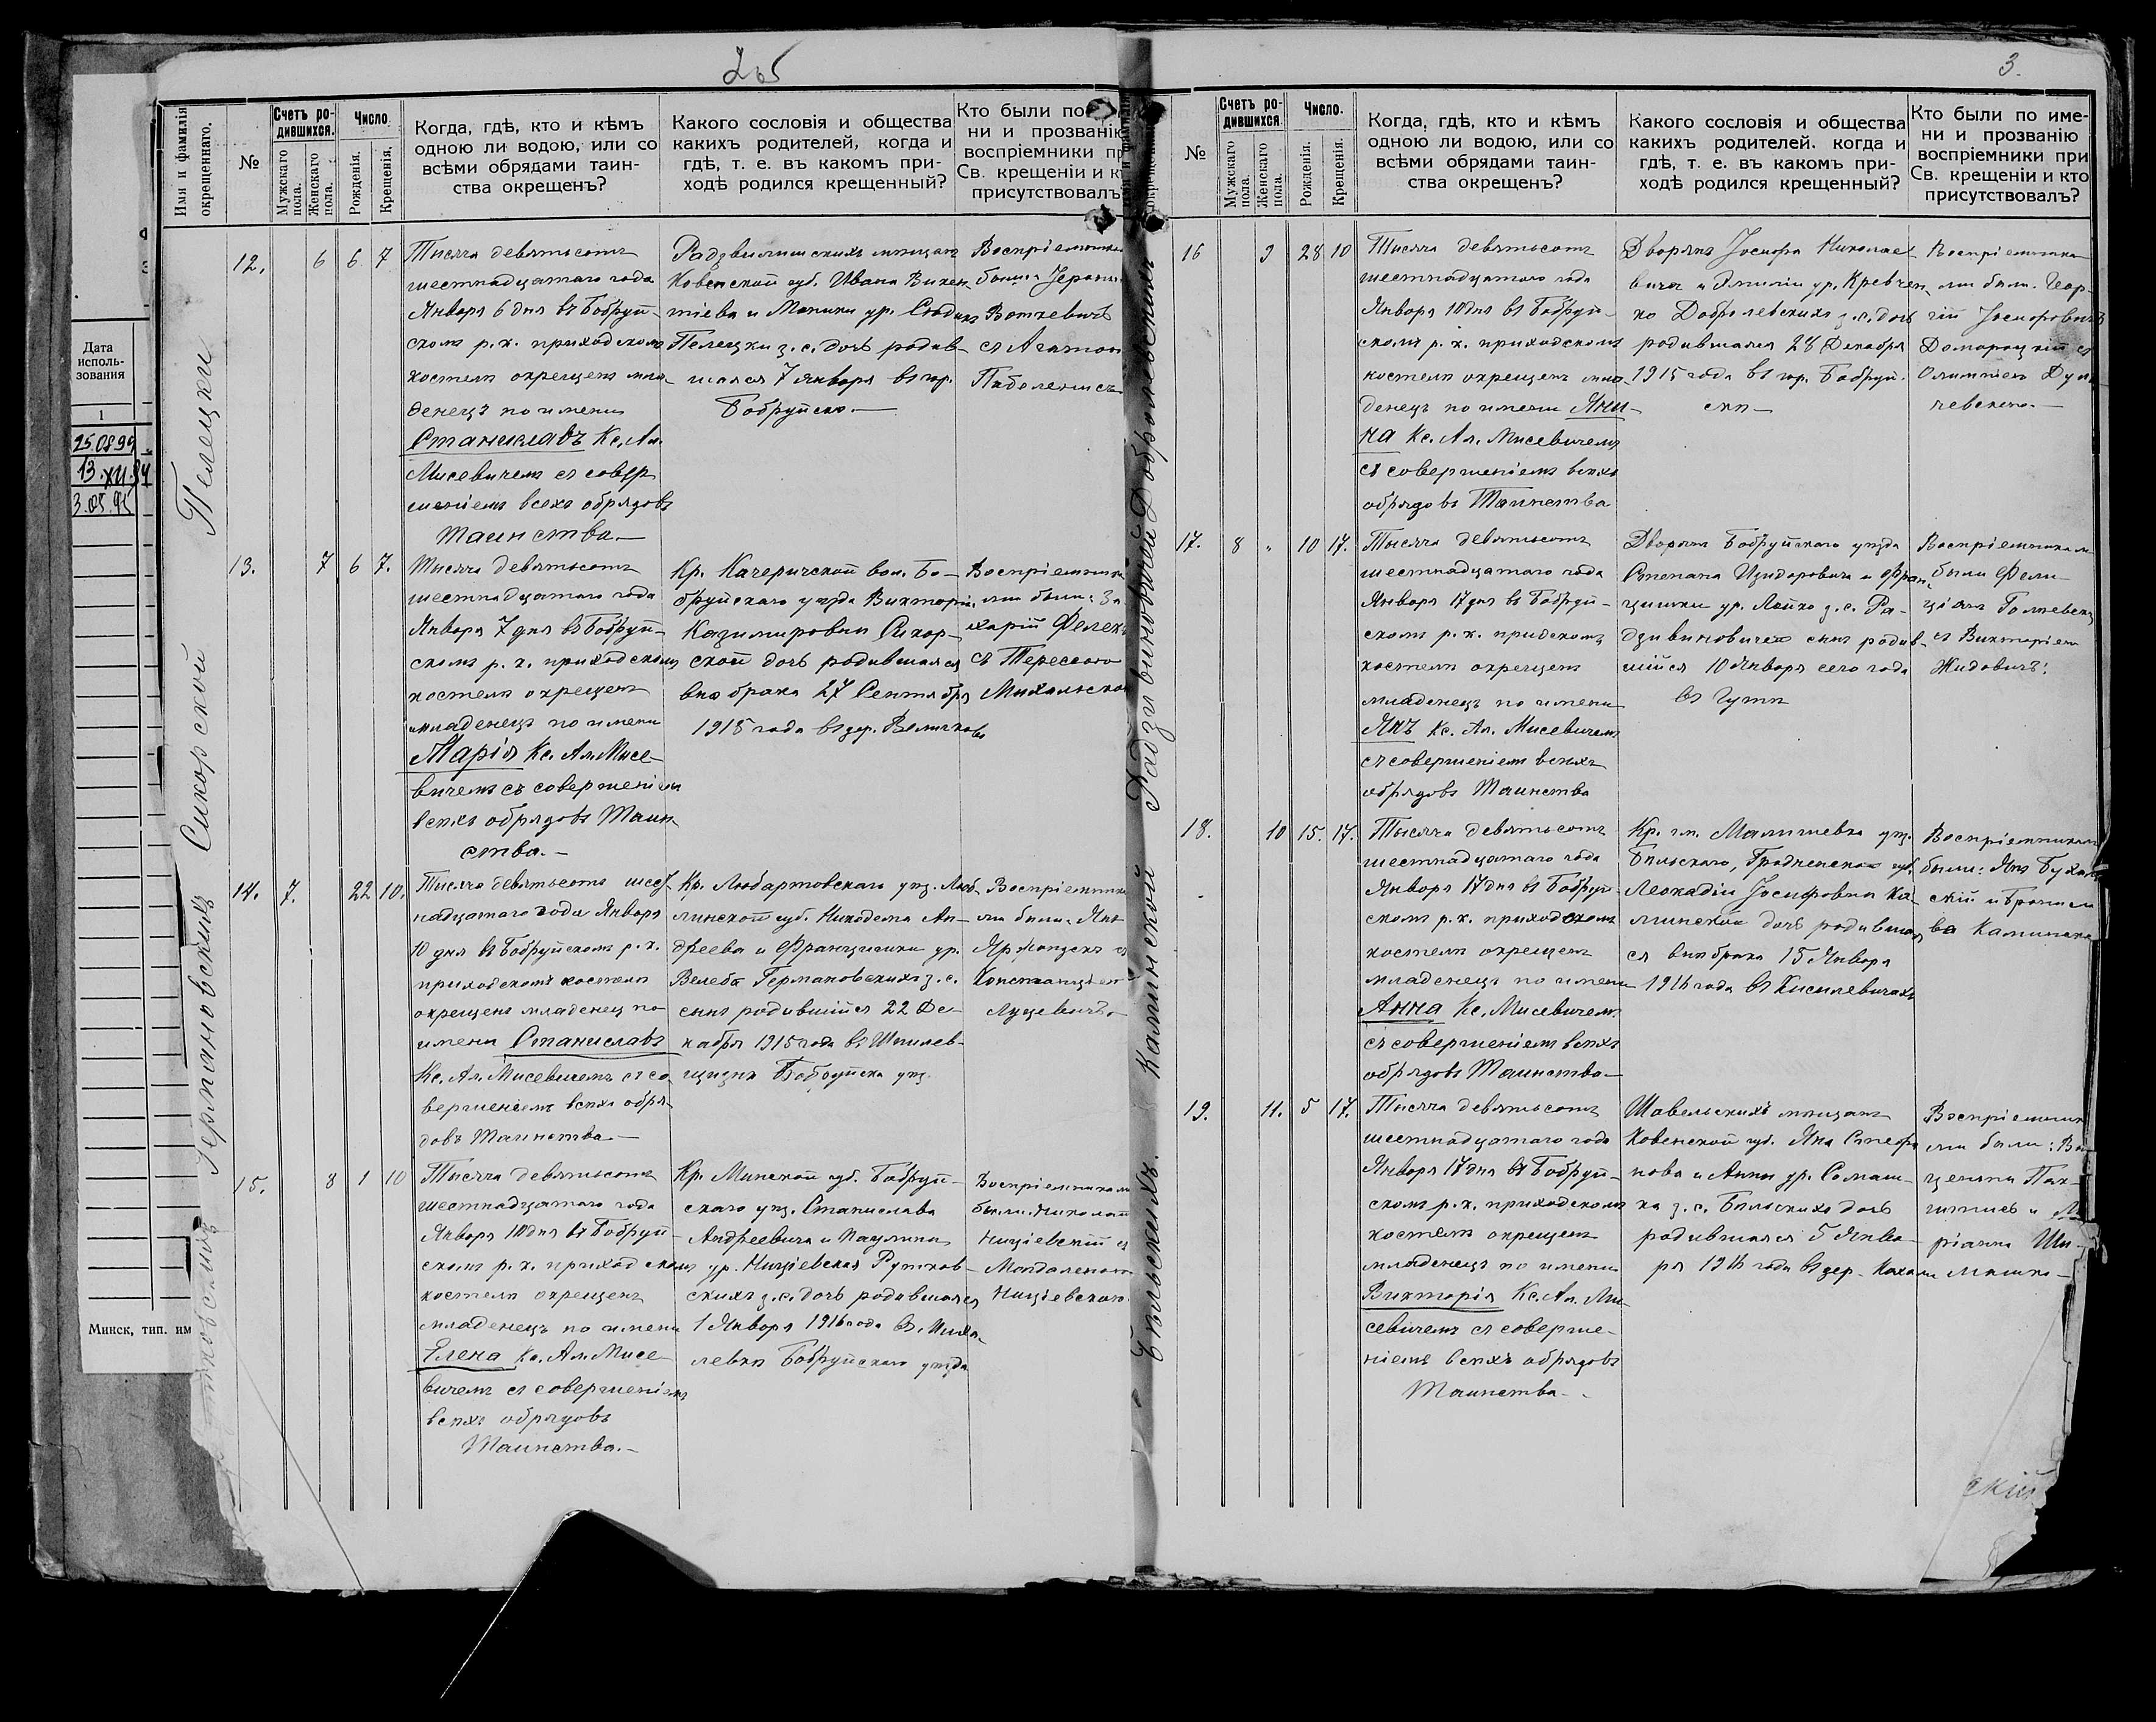 2об
3.
Дата
исполь-
зования
1
25.08.99
13.XII.94
3.05.95
Минск, тип. им
Имя и фамилія
окрещеннаго.
№
Счетъ ро-
дившихся.
Мужскаго
пола.
Женскаго
пола.
Число
Рожденія.
Крещенія.
Когда, гдѣ, кто и кѣмъ
одною ли водою, или со
всѣми обрядами таин-
ства окрещенъ?
Какого сословія и общества
какихъ родителей, когда и
гдѣ, т. е. въ какомъ при-
ходѣ родился крещенный?
Кто были по
ни и прозванію
воспріемники пр
Св. крещеніи и к
присутствовалъ
Пелецки
12. 6 6 7
Тысяча девятьсотъ
шестнадцатаго года
Января 6 дня въ Бобруй-
скомъ р. к. приходскомъ
костелѣ окрещенъ мла-
денецъ по имени
Станиславъ Кс. Ал.
Мисевичемъ съ совер
шеніемъ всехъ обрядовъ
Таинства.—
Радзвилишскихъ мѣщанъ
Ковенской губ. Ивана Викен
тіева и Моники ур.
Пелецки з. с. дочь родив-
шаяся 7 Января въ гор.
Бобруйскѣ.—
Воспріемника
были
Воткевичъ
съ Агатою
Сикорской
13. 7 6 7.
Тысяча девятьсотъ
шестнадцатаго года
Января 7 дня въ Бобруй-
скомъ р. к. приходскомъ
костелѣ окрещенъ
младенецъ по имени
Марія Кс. Ал. Мисе-
вичемъ съ совершеніемъ
всѣхъ обрядовъ Таин
ства.—
Кр. Качеричской вол. Бо-
бруйскаго уѣзда Викторіи
Казимировны Сикор-
ской дочь родившаяся
внѣ брака 27 Сентября
1915 года въ дер. Величкове
Воспріемника
ми были: За
харій
съ Терессою
Михальской
Германовскихъ
14. 7. 22 10.
Тысяча девятьсотъ шест
надцатаго года Января
10 дня въ Бобруйскомъ р. к.
приходскомъ костелѣ
окрещенъ младенец по
имени Станиславъ
Кс. Ал. Мисевичемъ съ со
вершеніемъ всѣхъ обря-
довъ Таинства.—
Кр. Любартовскаго уѣз. Люб-
линской губ. Никодема Ан-
дреева и Францишки ур.
Велеба Германовскихъ з. с.
сынъ родившійся 22 Де-
кабря 1915 года въ Шпилев-
щизнѣ Бобруйска уѣз.
Воспріемника
ми были: Янъ
съ
Констанціею
Луцевичъ
15. 8 1 10
Тысяча девятьсотъ
шестнадцатаго года
Января 10 дня въ Бобруй-
скомъ р. к. приходскомъ
костелѣ окрещенъ
младенецъ по имени
Елена Кс. Ал. Мисе
вичемъ съ совершеніемъ
всѣхъ обрядовъ
Таинства.—
Кр. Минской губ. Бобруй-
скаго уѣз. Станислава
Андреевича и Паулины
ур. Ницевская Рутков-
скихъ з. с. дочь родившаяся
1 Января 1916 года В.
левкѣ Бобруйскаго уѣзда
Воспріемниками
были: Николай
Ниціевскій съ
Магдаленою
Ниціевскою.
№
Счетъ ро-
дившихся
Мужскаго
пола.
Женскаго
пола.
Число.
Рожденія.
Крещенія.
Когда, гдѣ, кто и кѣмъ
одною ли водою, или со
всѣми обрядами таин-
ства окрещенъ?
Какого сословія и общества
какихъ родителей. когда и
гдѣ, т. е. въ какомъ при-
ходѣ родился крещенный?
Кто были по име-
ни и прозванію
воспріемники при
Св. крещеніи и кто
присутствовалъ?
Добролевскихъ
16 9 28 10
Тысяча девятьсотъ
шестнадцатаго года
Января 10 дня въ Бобруй-
скомъ р. к. приходскомъ
костелѣ окрещенъ мла-
денецъ по имени Яни-
на Кс. Ал. Мисевичемъ
съ совершеніемъ всѣхъ
обрядовъ Таинства
Дворянъ Іосифа Николае-
вича и Эмиліи ур. Кревчен
ко Добролевскихъ з. с. дочь
родившаяся 28 Декабря
1915 года въ гор. Бобруй-
скѣ—
Воспріемника
ми были. Геор-
гій Іосифовичъ
Доморацкій съ
Олимпіею
Радзивиновичей
17. 8 „ 10 17.
Тысяча девятьсотъ
шестнадцатаго года
Января 17 дня въ Бобруй-
скомъ р. к. придскомъ
костелѣ окрещенъ
младенецъ по имени
Янъ Кс. Ал. Мисевичемъ
съ совершеніемъ всѣхъ
обрядовъ Таинства
Дворянъ Бобруйскаго уѣзда
Степана Изидоровича и Фран
цишки ур. Лойко з. с. Ра-
дзивиновичей сынъ родив-
шійся 10 Января сего года
въ Гутѣ
Воспріемникам
были Фели
ціянъ
съ Викторіею
Жидовичъ:
Каминской
18. 10 15. 17.
Тысяча девятьсотъ
шестнадцатаго года
Января 17 дня въ Бобруй-
скомъ р. к. приходскомъ
костелѣ окрещенъ
младенецъ по имени
Анна Кс. Мисевичемъ
съ совершеніемъ всѣхъ
обрядовъ Таинства—
Кр. гм. Малишевка уѣз.
Бѣльскаго, Гродненской губ.
Леокадіи Іосифовны Ка-
минской дочь родившая
ся внѣ брака 15 Января
1916 года въ Кисилевичахъ
Воспріемникам
были: Янъ
скій и Бронисла
ва Каминска
Бѣльскихъ.
19. 11. 5 17.
Тысяча девятьсотъ
шестнадцатаго года
Января 17 дня въ Бобруй-
скомъ р. к. приходскомъ
костелѣ окрещенъ
младенецъ по имени
Викторія Кс. Ал. Ми-
севичемъ съ соверше-
ніемъ всѣхъ обрядовъ
Таинства—.
Шавельскихъ мѣщанъ
Ковенской губ. Яна Стефа
нова и Анны ур. Сомаш-
ка з. с. Бѣльскихъ дочь
родившаяся 5 Янва-
ря 1916 года въ дер.
Воспріемник
ми были: Ви
ская